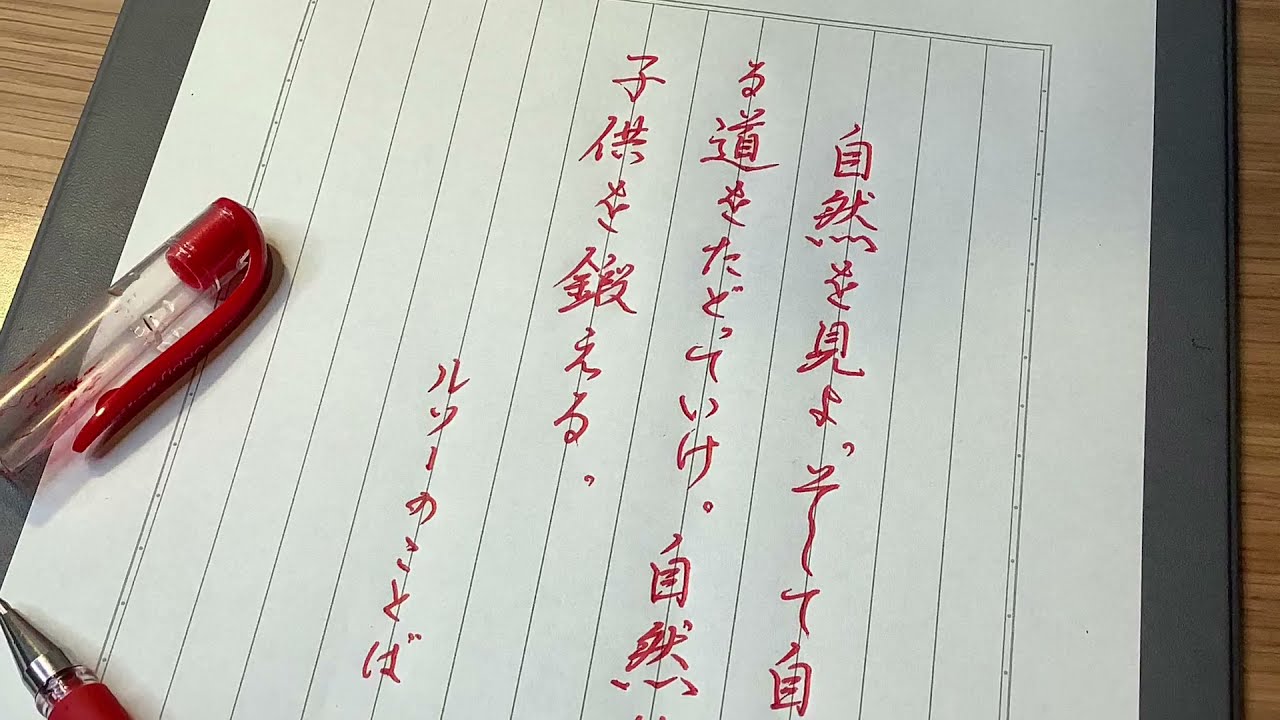 自然を見よ。そして自
る道をたどっていけ。自然
子供を鍛える。
ルソーのことば